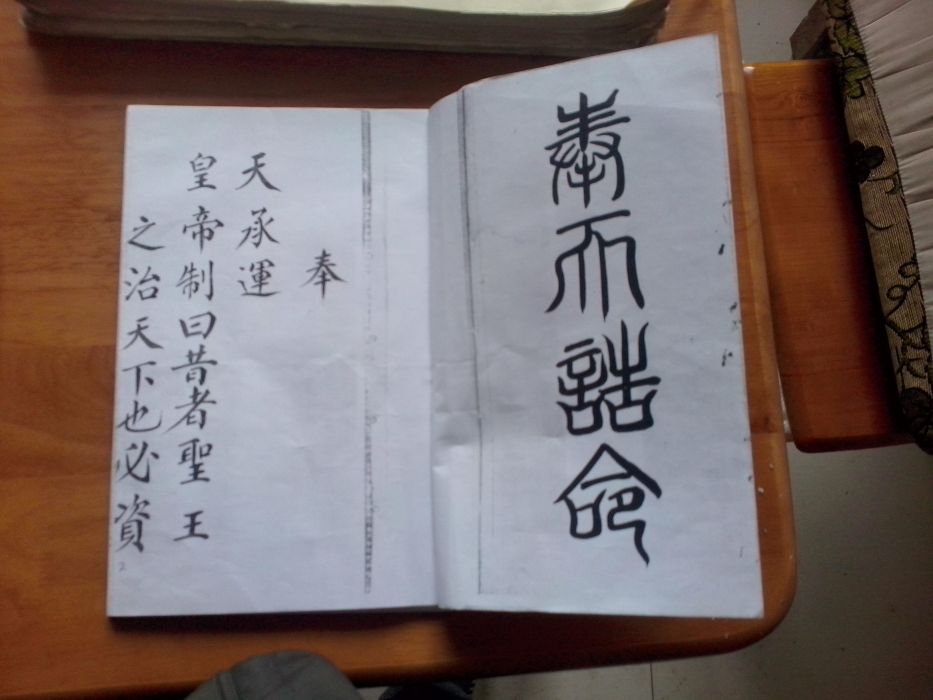 奉天誥命
1
奉
天承運
皇帝制曰昔者聖王
之治天下也必資
2